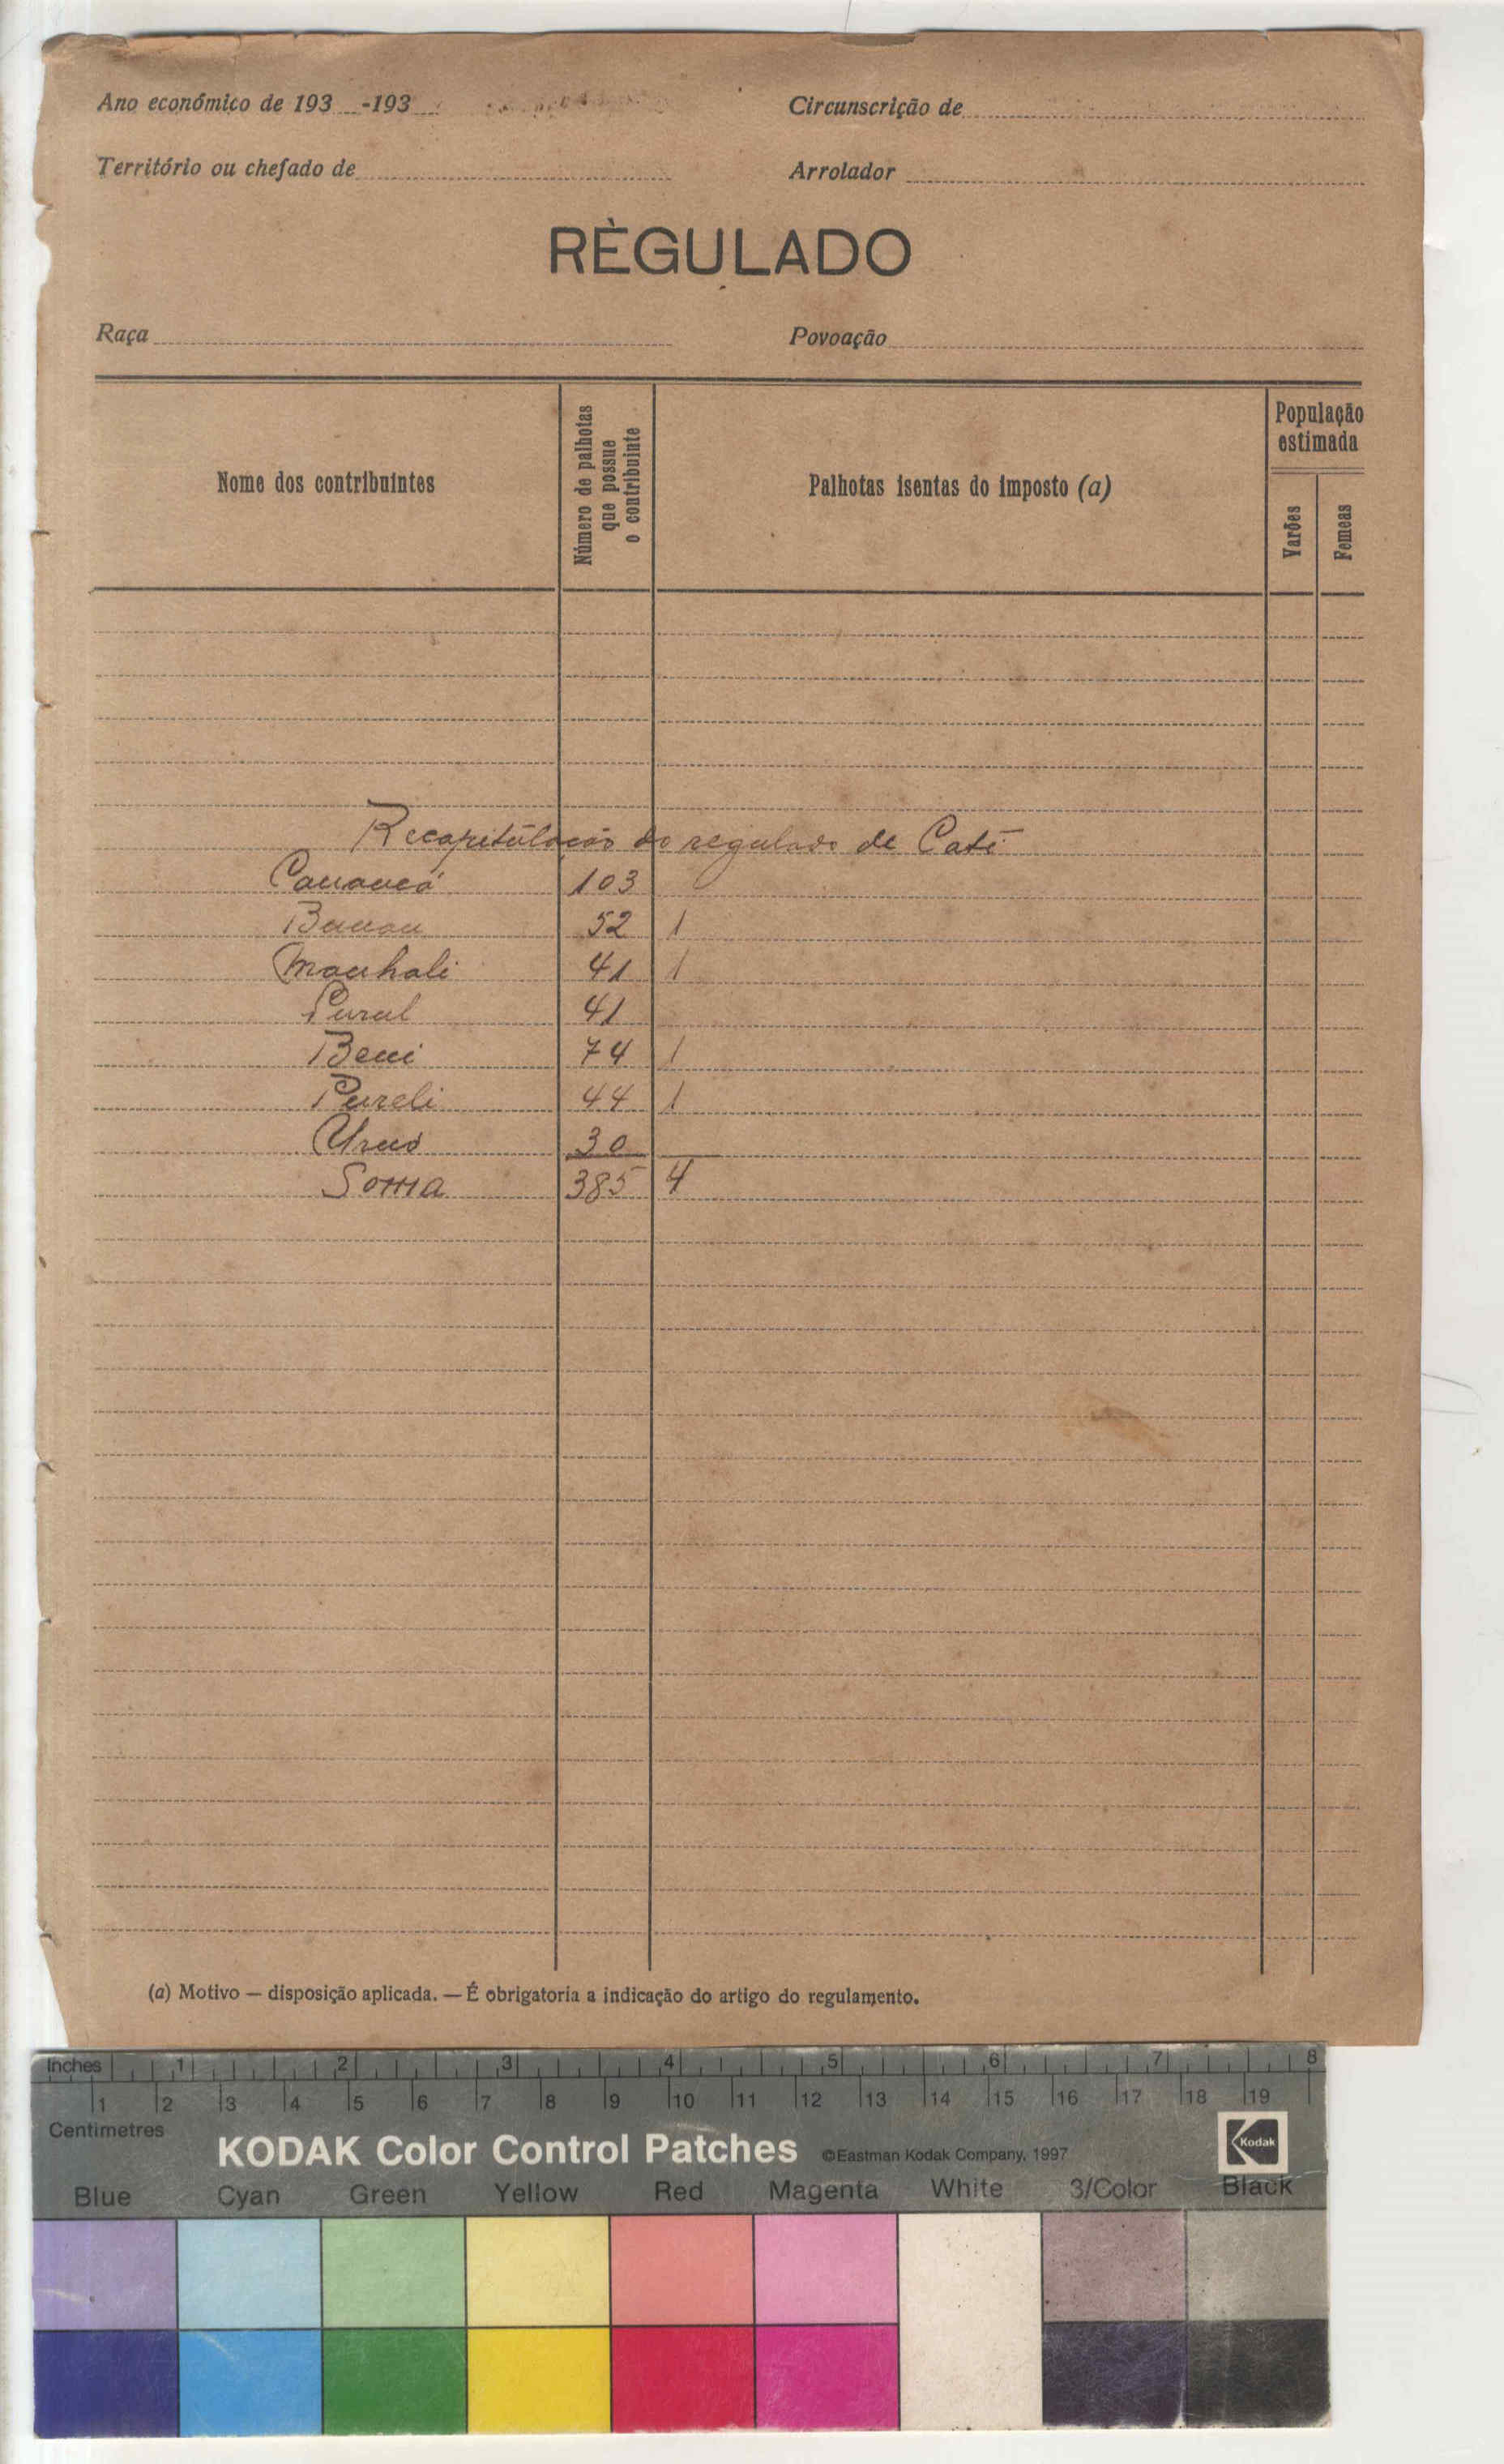 Ano económico de 193 -193
Circunscrição de
Território ou chefado de
Arrolador
RÈGULADO
Raça
Povoação
Nome dos contribuintes
Número de palhotas
que possue
o contribuinte
Palhotas isentas do imposto (a)
População
estimada
Varões
Femeas
Recapitúlação do regulado de Caté
103
52 1
41 1
41
Beni 74 1
Pureli 44 1
30
Soma 385 4
(a) Motivo — disposição aplicada. — É obrigatoria a indicação do artigo do regulamento.
Inches 1 2 3 4 5 6 7 8
1 2 3 4 5 6 7 8 9 10 11 12 13 14 15 16 17 18 19
Centimetres
KODAK Color Control Patches ©Eastman Kodak Company, 1997 Kodak
Blue Cyan Green Yellow Red Magenta White 3/Color Black